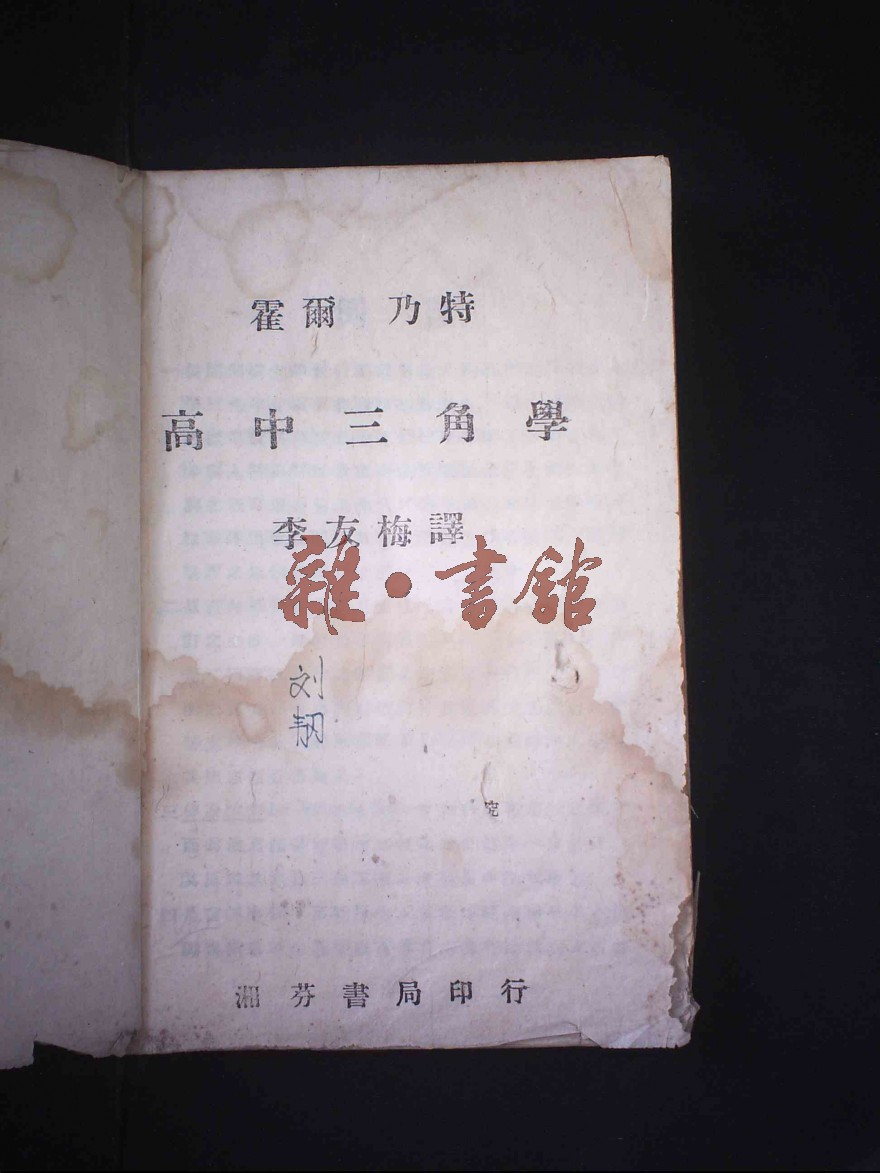 霍爾 乃特
高中三角學
李友梅譯
雜·書館
刘
韧
湘芬書局印行